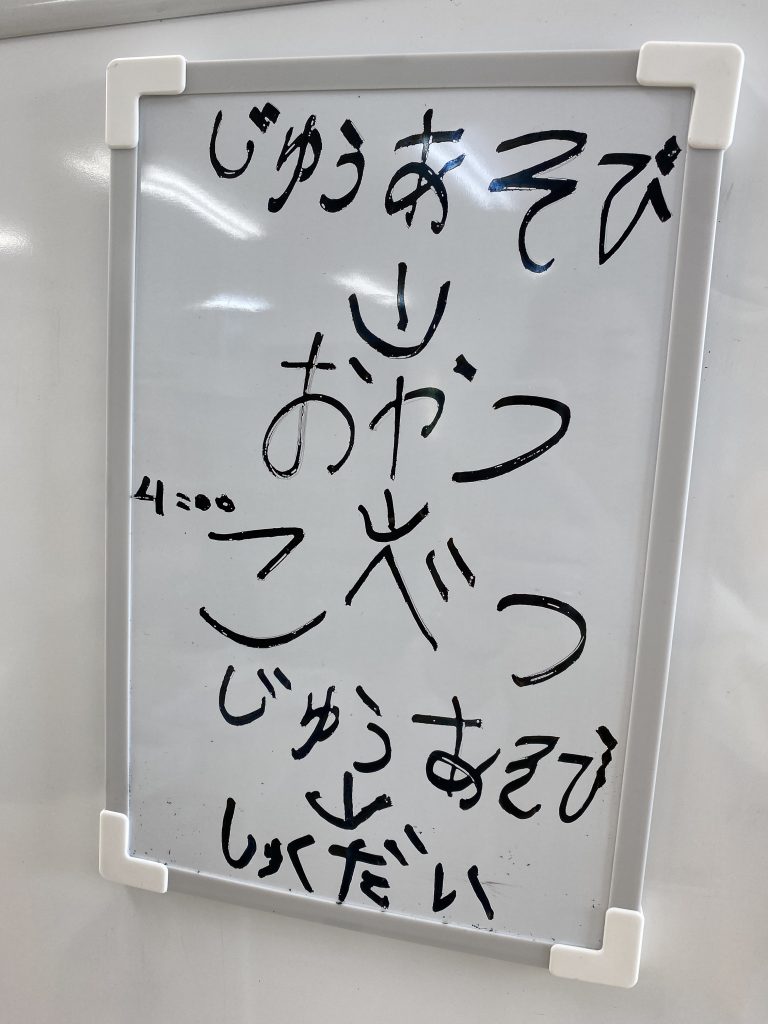 じゅうあそび
↓
おやつ
↓
4:00
こべつ
じゅうあそび
↓
しゅくだい